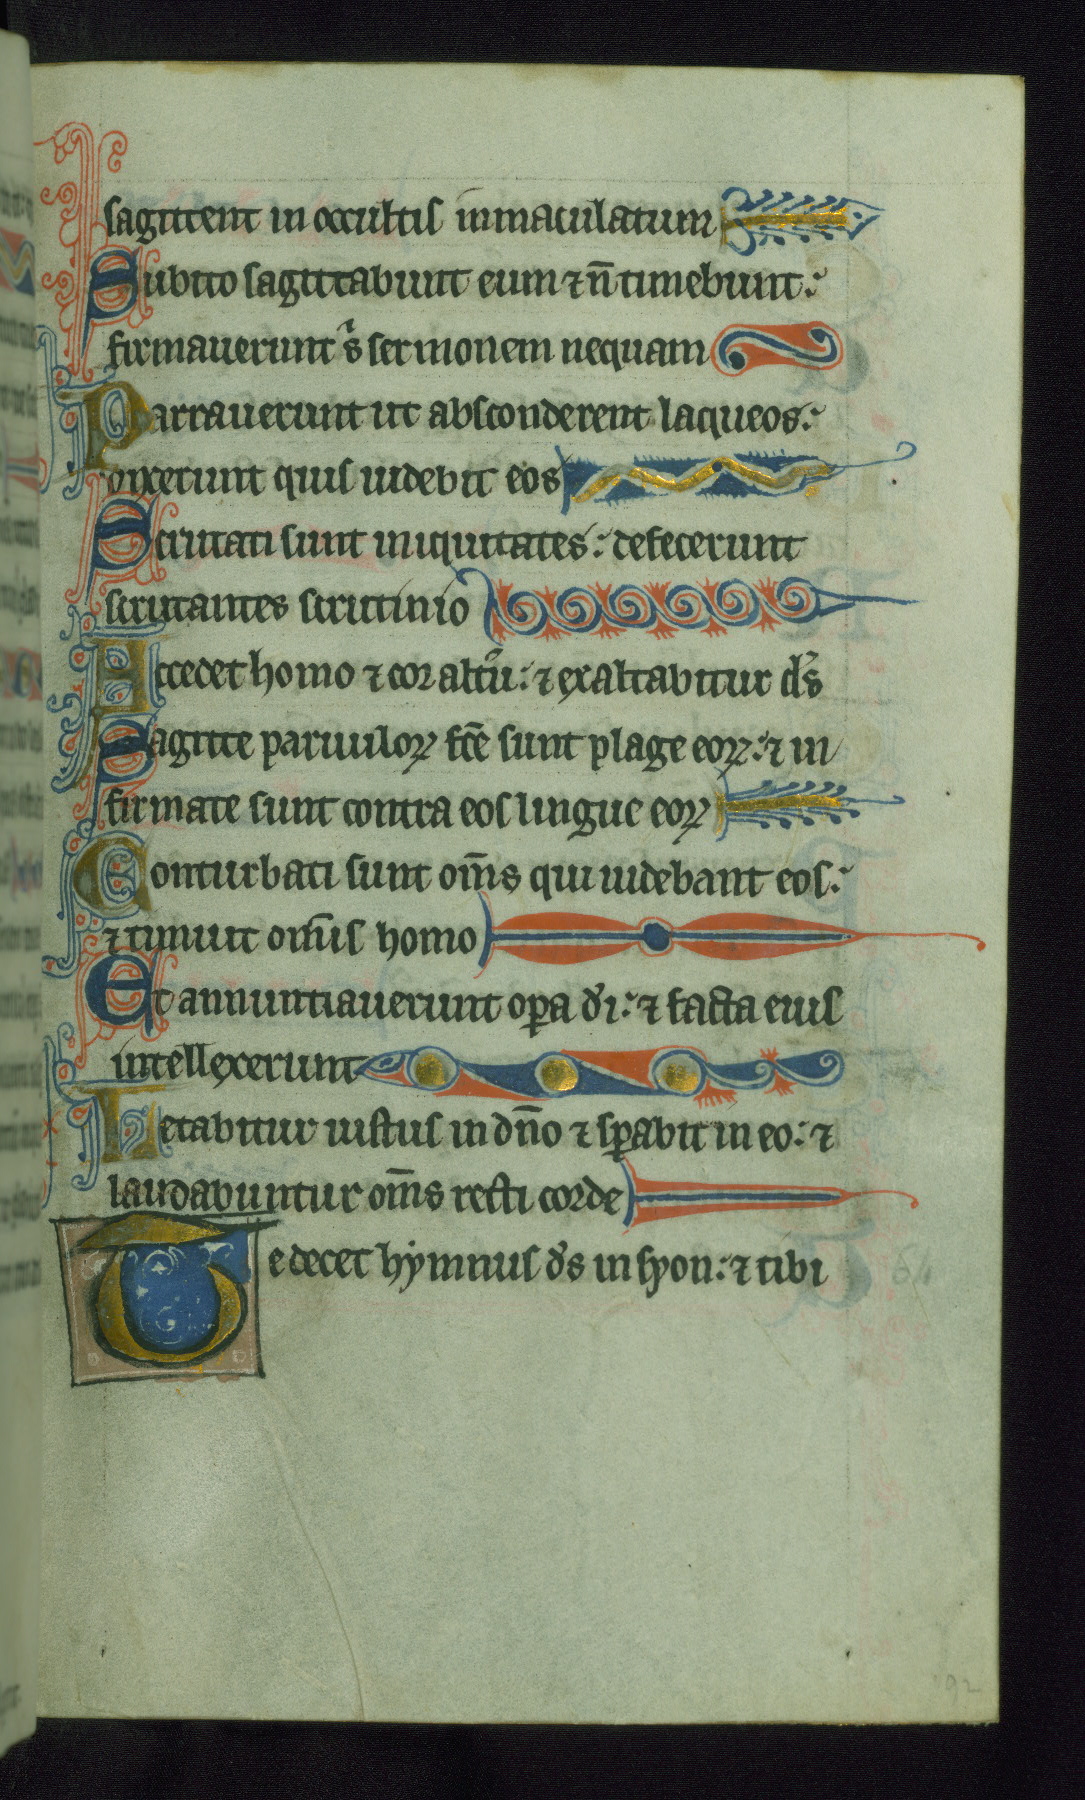 sagittent in occultis inmaculatum
Subito sagittabunt eum ⁊ n̄ timebunt:
firmauerunt sͥ sermonem nequam
Narrauerunt ut absconderent laqueos:
dixerunt quis uidebit eos
Scrutati sunt iniquitates: defecerunt
scrutantes scrutinio
Accedet homo ⁊ cor altū: ⁊ exaltabitur ds̄
Sagitte paruuloꝝ fc̄e sunt plage eoꝝ: ⁊ in
firmate sunt contra eos lingue eoꝝ
Conturbati sunt om̄s qui uidebant eos:
⁊ timuit om̄is homo
Et annuntiauerunt oꝑa di̾: ⁊ facta eius
intellexerunt
Letabitur iustus in dn̄o ⁊ sꝑabit in eo: ⁊
laudabuntur om̄s recti corde
Te decet hẏmnus ds̄ in syon: ⁊ tibi
64
92